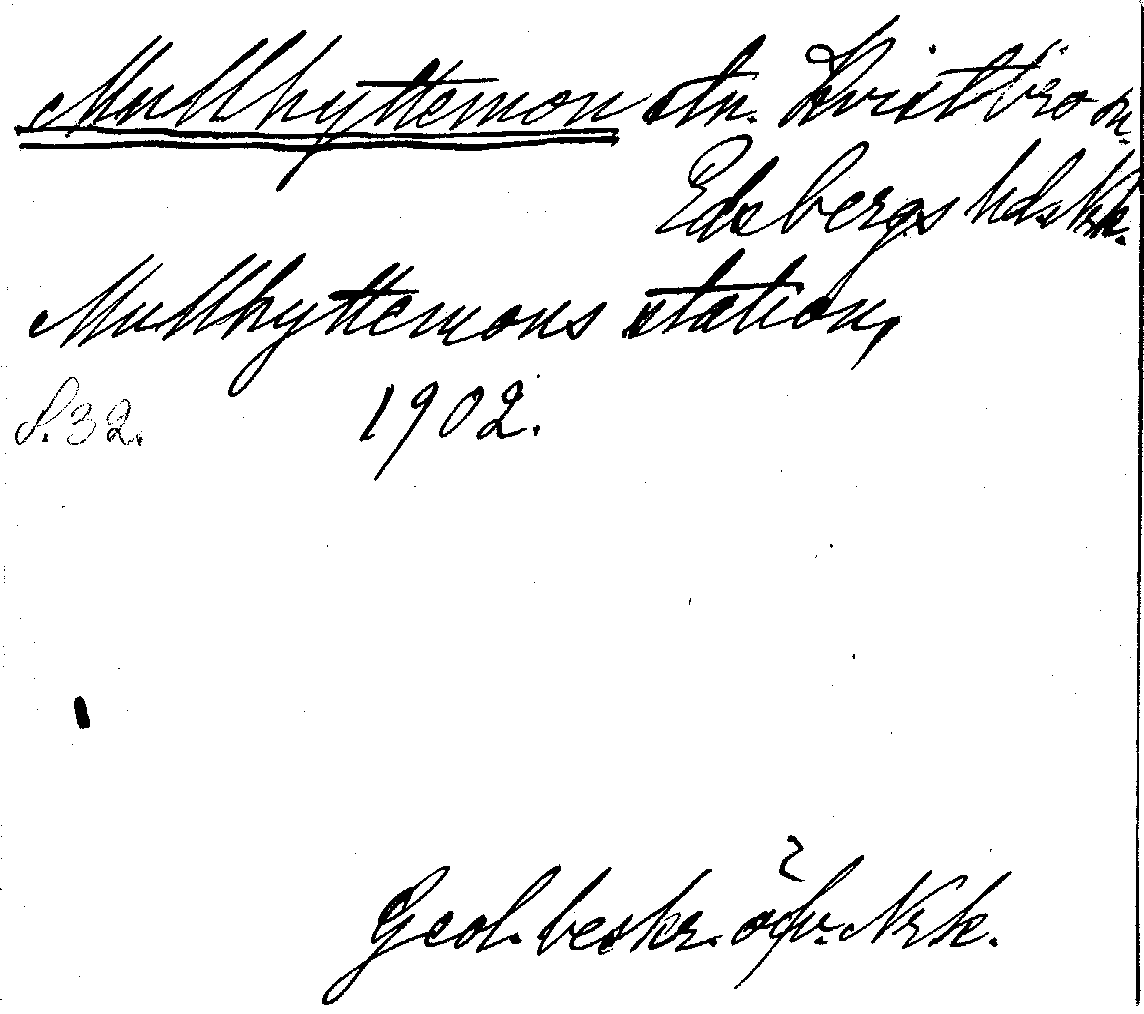 Mullhyttemon stn. Kvistbro sn.
Edsbergs hd. Nrk.
Mullhyttemons station,
S. 32. 1902.
Geol. beskr. öfv. Nrk.